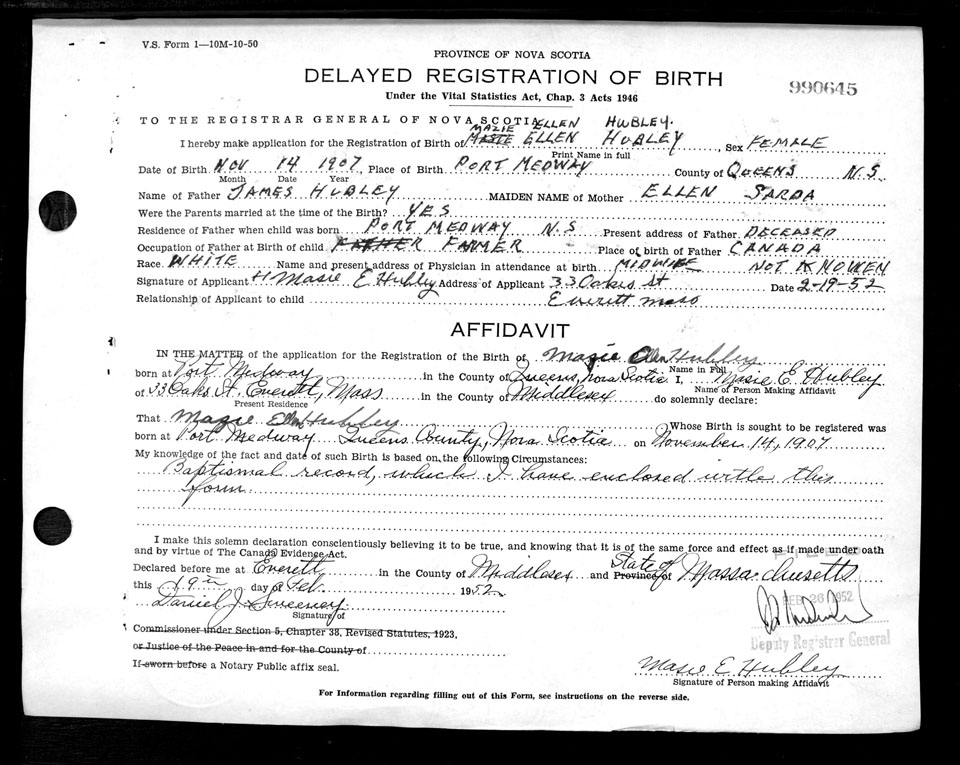 V.S. Form 1—10M-10-50
PROVINCE OF NOVA SCOTIA
DELAYED REGISTRATION OF BIRTH
990645
Under the Vital Statistics Act, Chap. 3 Acts 1946
TO THE REGISTRAR GENERAL OF NOVA SCOTIA
MAZIE ELLEN HUBLEY.
I hereby make application for the Registration of Birth of ELLEN HUBLEY, Sex FEMALE
Print Name in full
Date of Birth NOV 14 1907 Place of Birth PORT MEDWAY County of QUEENS N.S
Month Date Year
Name of Father JAMES HUBLEY MAIDEN NAME of Mother ELLEN SARDA
Were the Parents married at the time of the Birth? YES
Residence of Father when child was born PORT MEDWAY N.S Present address of Father DECEASED
Occupation of Father at Birth of child FARMER Place of birth of Father CANADA
Race WHITE Name and present address of Physician in attendance at birth MIDWIFE NOT KNOWEN
Signature of Applicant Masie E Hubley Address of Applicant 33 Oakes st Date 2-19-52
Relationship of Applicant to child Everett mass
AFFIDAVIT
IN THE MATTER of the application for the Registration of the Birth of Mazie Ellen Hubley
Name in Full
born at Port Medway in the County of Queens, Nova Scotia I, Masie E. Hubley
Name of Person Making Affidavit
of 33 Oaks St. Everett, Mass in the County of Middlesex do solemnly declare:
Present Residence
That Mazie Ellen Hubley Whose Birth is sought to be registered was
born at Port Medway Queens County, Nova Scotia on November 14, 1907
My knowledge of the fact and date of such Birth is based on the following Circumstances:
Baptismal record, which I have enclosed with this
form
I make this solemn declaration conscientiously believing it to be true, and knowing that it is of the same force and effect as if made under oath
and by virtue of The Canada Evidence Act.
FILED
Declared before me at Everett in the County of Middlesex and Province of State of Massachusetts
this 19th day of Feb. 1952
FEB 26 1952
Daniel J. Sweeney
Signature of
Deputy Registrar General
Commissioner under Section 5, Chapter 38, Revised Statutes, 1923,
or Justice of the Peace in and for the County of
If sworn before a Notary Public affix seal.
Masie E Hubley
Signature of Person making Affidavit
For Information regarding filling out of this Form, see instructions on the reverse side.